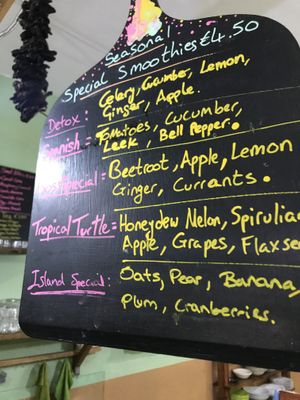 Seasonal
Special Smoothies €4.50
Detox: Celery, Cucumber, Lemon,
Ginger, Apple.
Spanish = Tomatoes, Cucumber,
Leek, Bell Pepper.
Special = Beetroot, Apple, Lemon
Ginger, Currants.
Tropical Turtle = Honeydew Melon, Spirulina
Apple, Grapes, Flaxsee
Island Special: Oats, Pear, Banana,
Plum, Cranberries.